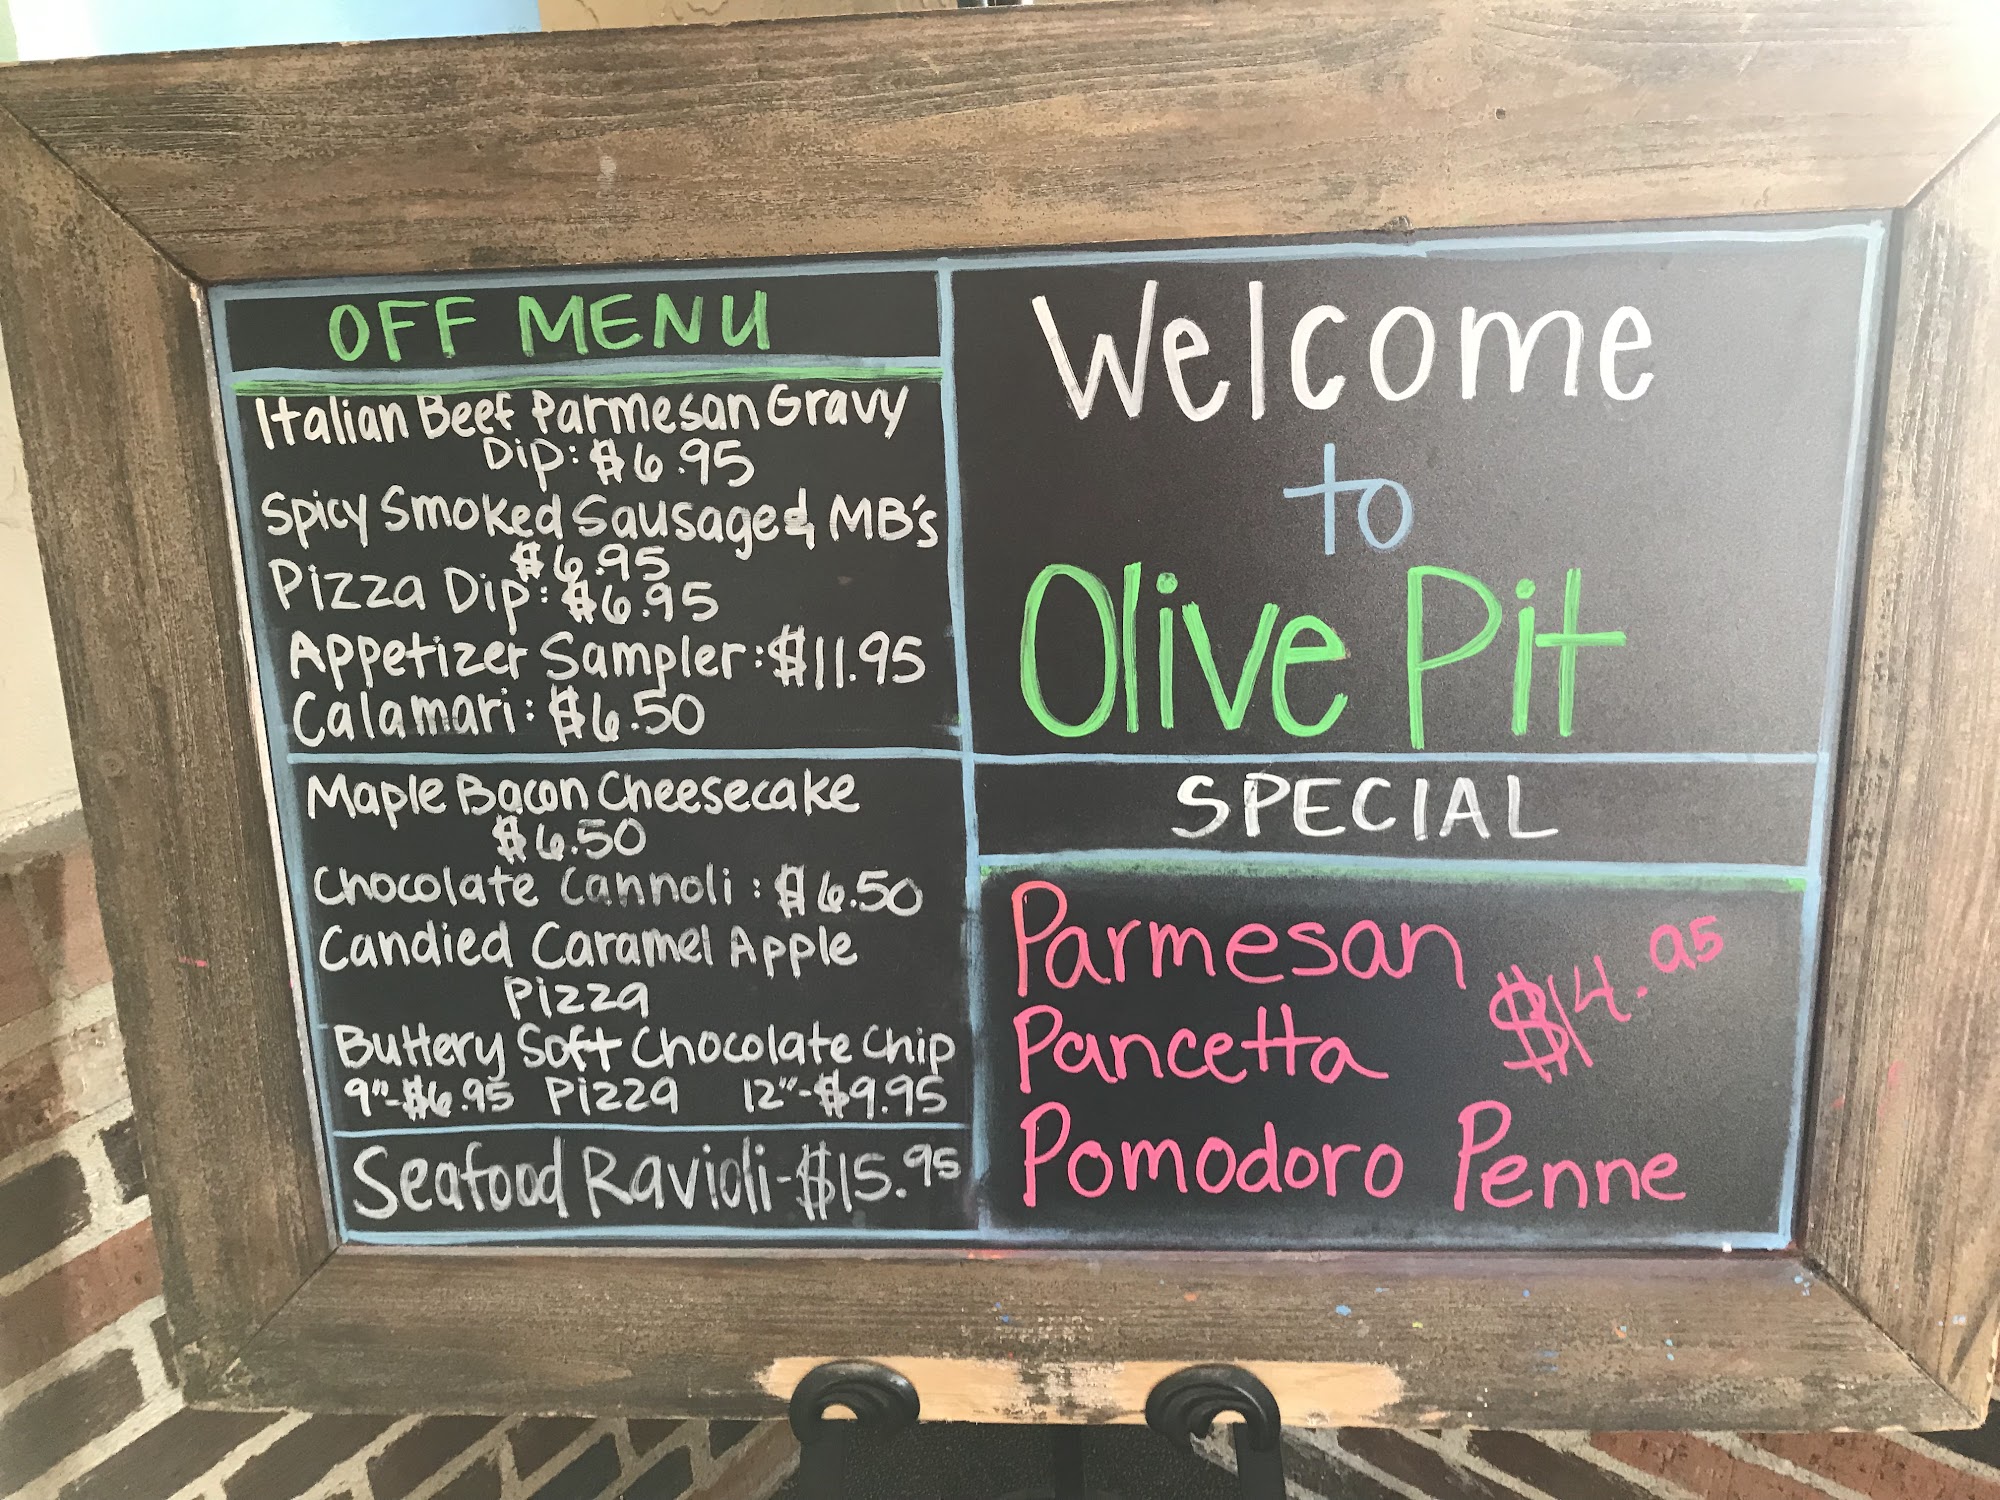 OFF MENU
Italian Beef Parmesan Gravy
Dip: $6.95
Spicy Smoked Sausage & MB's
$6.95
Pizza Dip: $6.95
Appetizer Sampler: $11.95
Calamari: $6.50
Maple Bacon Cheesecake
$6.50
Chocolate Cannoli: $6.50
Candied Caramel Apple
Pizza
Buttery Soft Chocolate Chip
9"-$6.95 Pizza 12"-$9.95
Seafood Ravioli-$15.95
Welcome
to
Olive Pit
SPECIAL
Parmesan $14.95
Pancetta
Pomodoro Penne